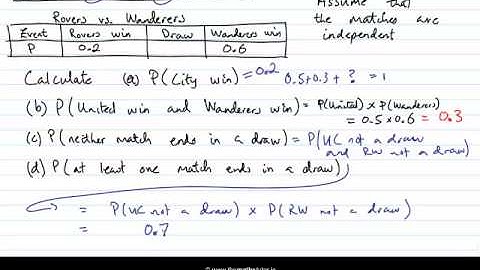 Assume that
Rovers vs. Wanderers
the matches are
independent
Event Rovers win Draw Wanderers win
P 0.2 0.6
Calculate (a) P(City win) = 0.2 0.5+0.3+ ? = 1
(b) P(United win and Wanderers win) = P(United) x P(Wanderers)
= 0.5 x 0.6 = 0.3
(c) P(neither match ends in a draw) = P(UC not a draw
and RW not a draw)
(d) P(at least one match ends in a draw)
= P(UC not a draw) x P(RW not a draw)
= 0.7